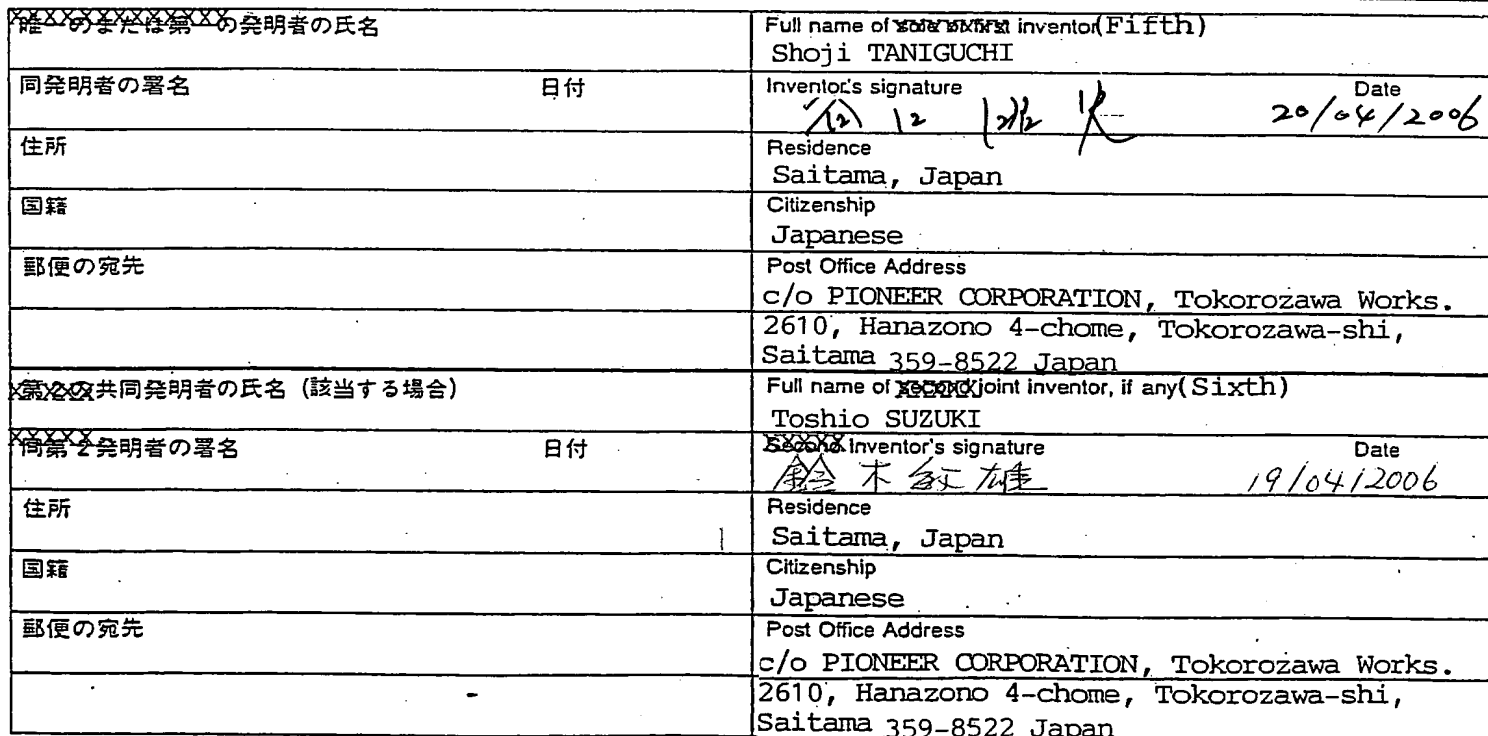 唯一のまたは第一の発明者の氏名
Full name of sole or first inventor(Fifth)
Shoji TANIGUCHI
同発明者の署名 日付
Inventor's signature Date
20/04/2006
住所
Residence
Saitama, Japan
国籍
Citizenship
Japanese
郵便の宛先
Post Office Address
c/o PIONEER CORPORATION, Tokorozawa Works.
2610, Hanazono 4-chome, Tokorozawa-shi,
Saitama 359-8522 Japan
第2の共同発明者の氏名（該当する場合）
Full name of second joint inventor, if any(Sixth)
Toshio SUZUKI
同第2発明者の署名 日付
Second inventor's signature Date
鈴木敏雄 19/04/2006
住所
Residence
Saitama, Japan
国籍
Citizenship
Japanese
郵便の宛先
Post Office Address
c/o PIONEER CORPORATION, Tokorozawa Works.
2610, Hanazono 4-chome, Tokorozawa-shi,
Saitama 359-8522 Japan